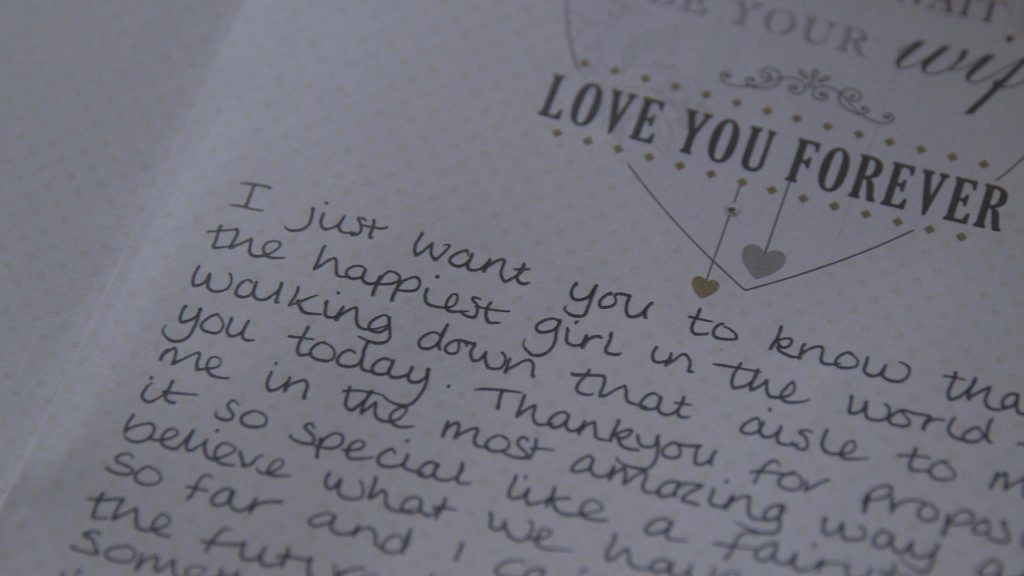 YOUR
LOVE YOU FOREVER
I just want you to know
the happiest girl in the world
walking down that aisle to
you today. Thankyou for
me in the most amazing way
it so special like a
believe what we
so far and I
the